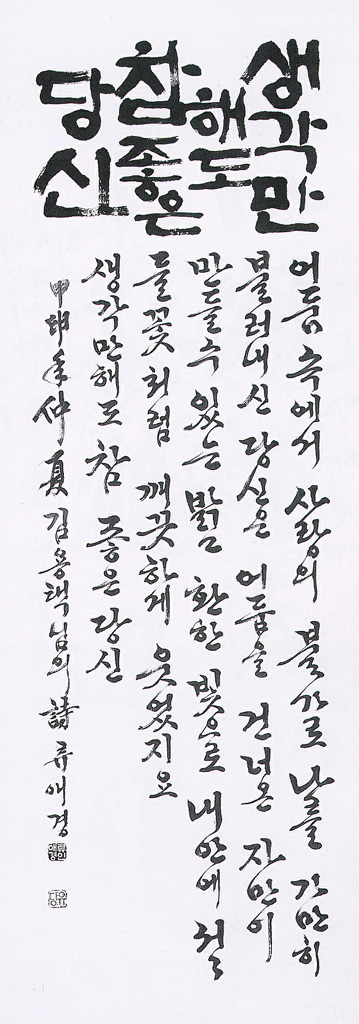 생각만
해도
참좋은
당신
어둠 속에서 사랑의 불가로 나를 가만히
불러내신 당신은 어둠을 건너온 자만이
만들 수 있는 환한 빛으로 내 안에
들꽃처럼 깨끗하게 웃었지요
생각만해도 참 좋은 당신
甲申年 仲夏 김용택님의 詩 류애경